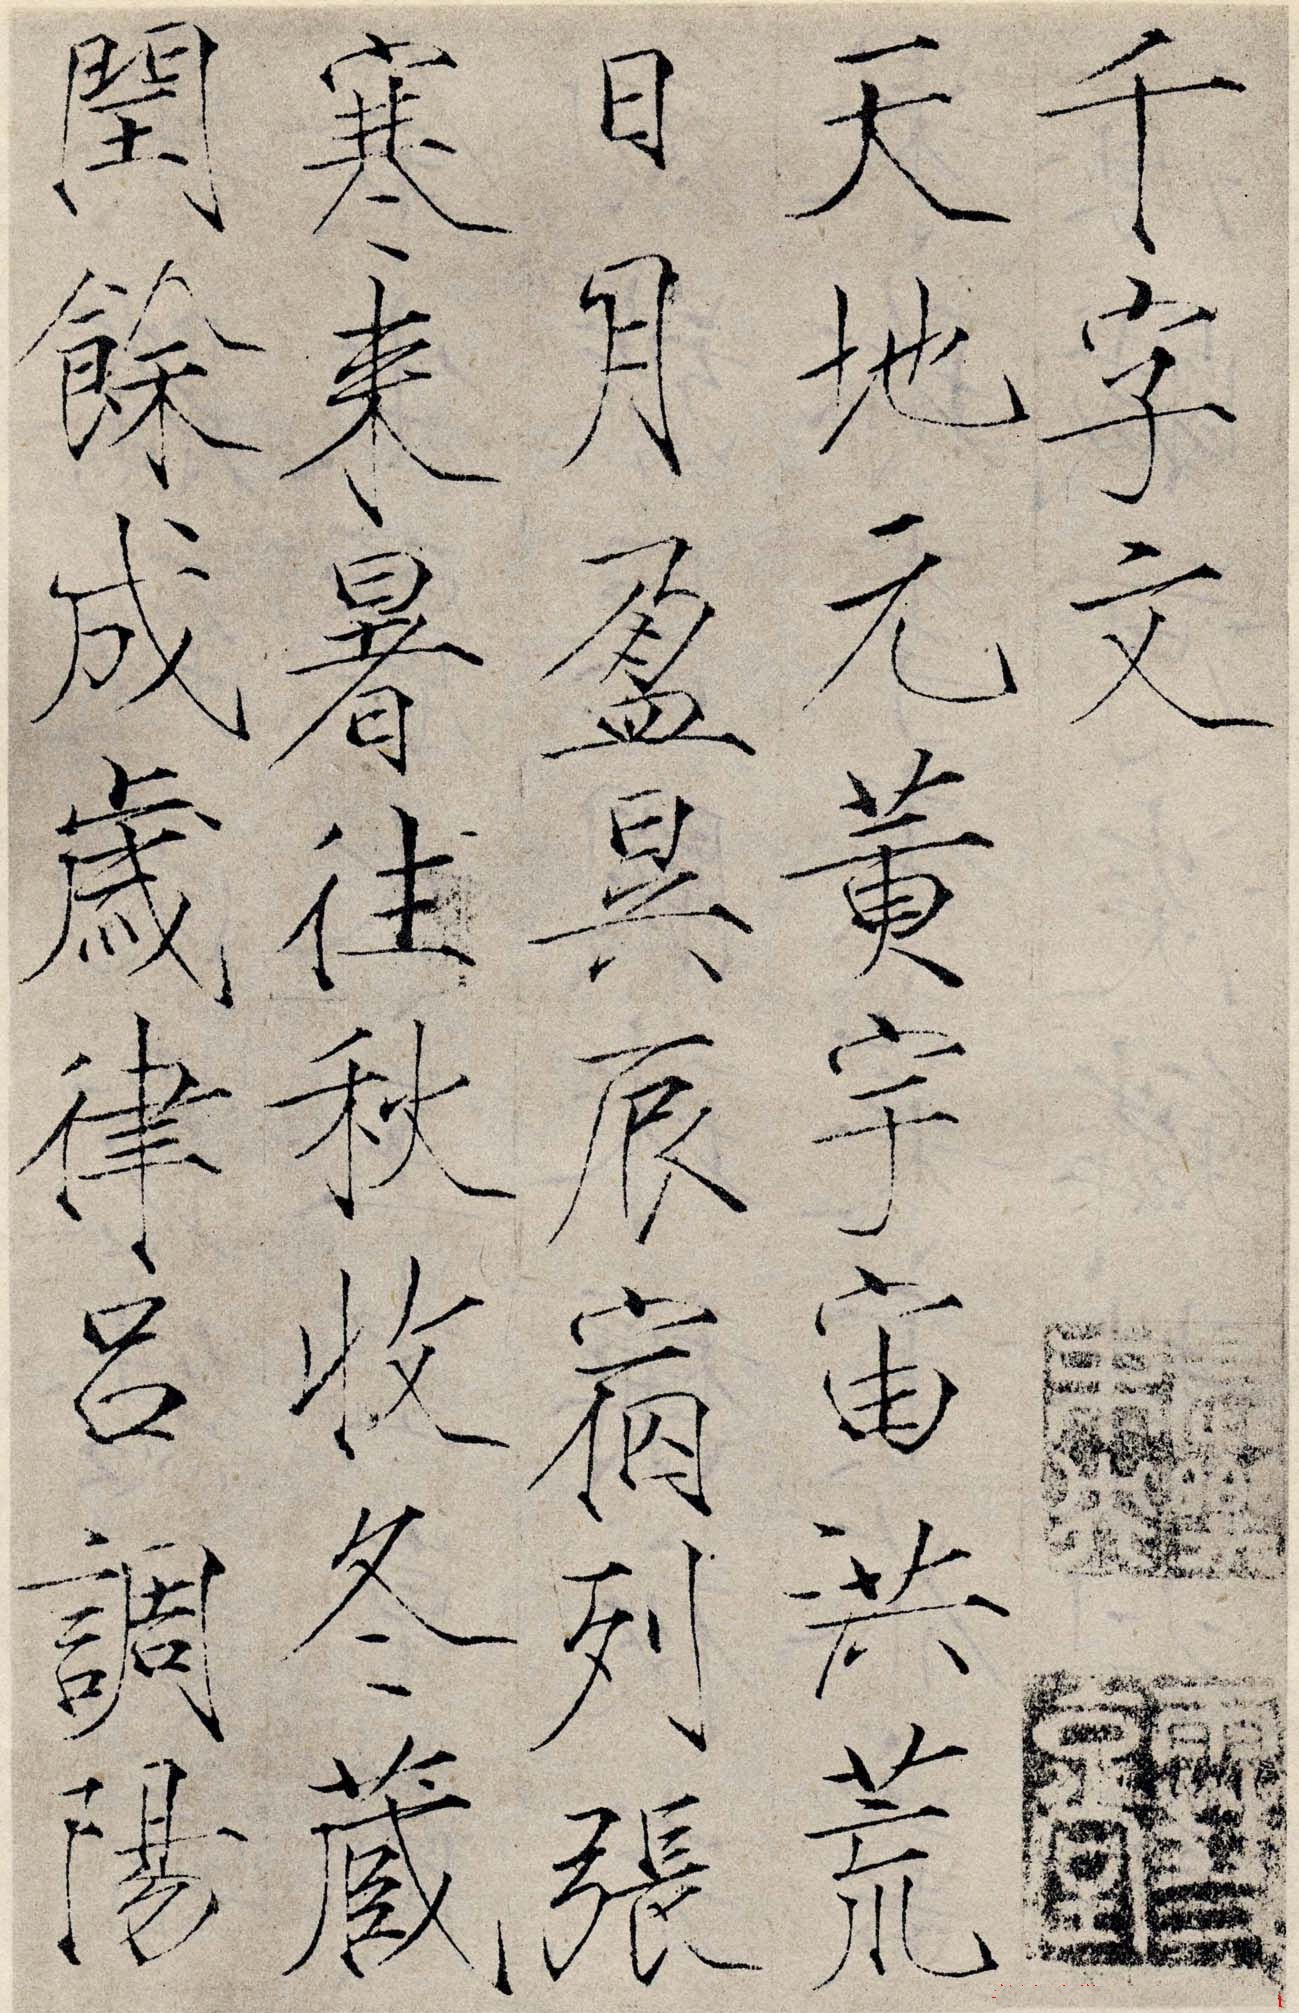 千字文
天地元黄宇宙洪荒
日月盈昃辰宿列張
寒来暑往秋收冬蔵
閏餘成歲律呂調陽